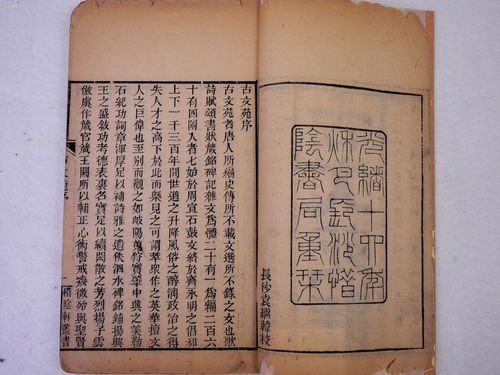 光緒十四年
秋八月長沙惜
陰書局重栞
長沙袁韓校
古文苑序
古文苑者唐人所編史傳所不載文選所不錄之文也歌
詩賦頌書狀箴銘碑記雜文爲體二十有一爲編二百六
十有四附入者七始於周宣石鼓文終於齊永明之倡和
上下一千三百年間世道之升降風俗之醇漓政治之得
失人才之高下於此而槩見之可謂萃衆作之英華擅文
人之巨偉也至別而觀之如岐陽蒐狩實肇中興之美勒
石紀功詞章渾厚足以補詩雅之遺佚泗水碑銘鋪揚興
王之盛敘功考德表裏名實足以續閎散之芳烈揚子雲
倣虞作箴官箴王闕所以輔正心術警戒幾微殆與聖賢
一 惜陰軒叢書